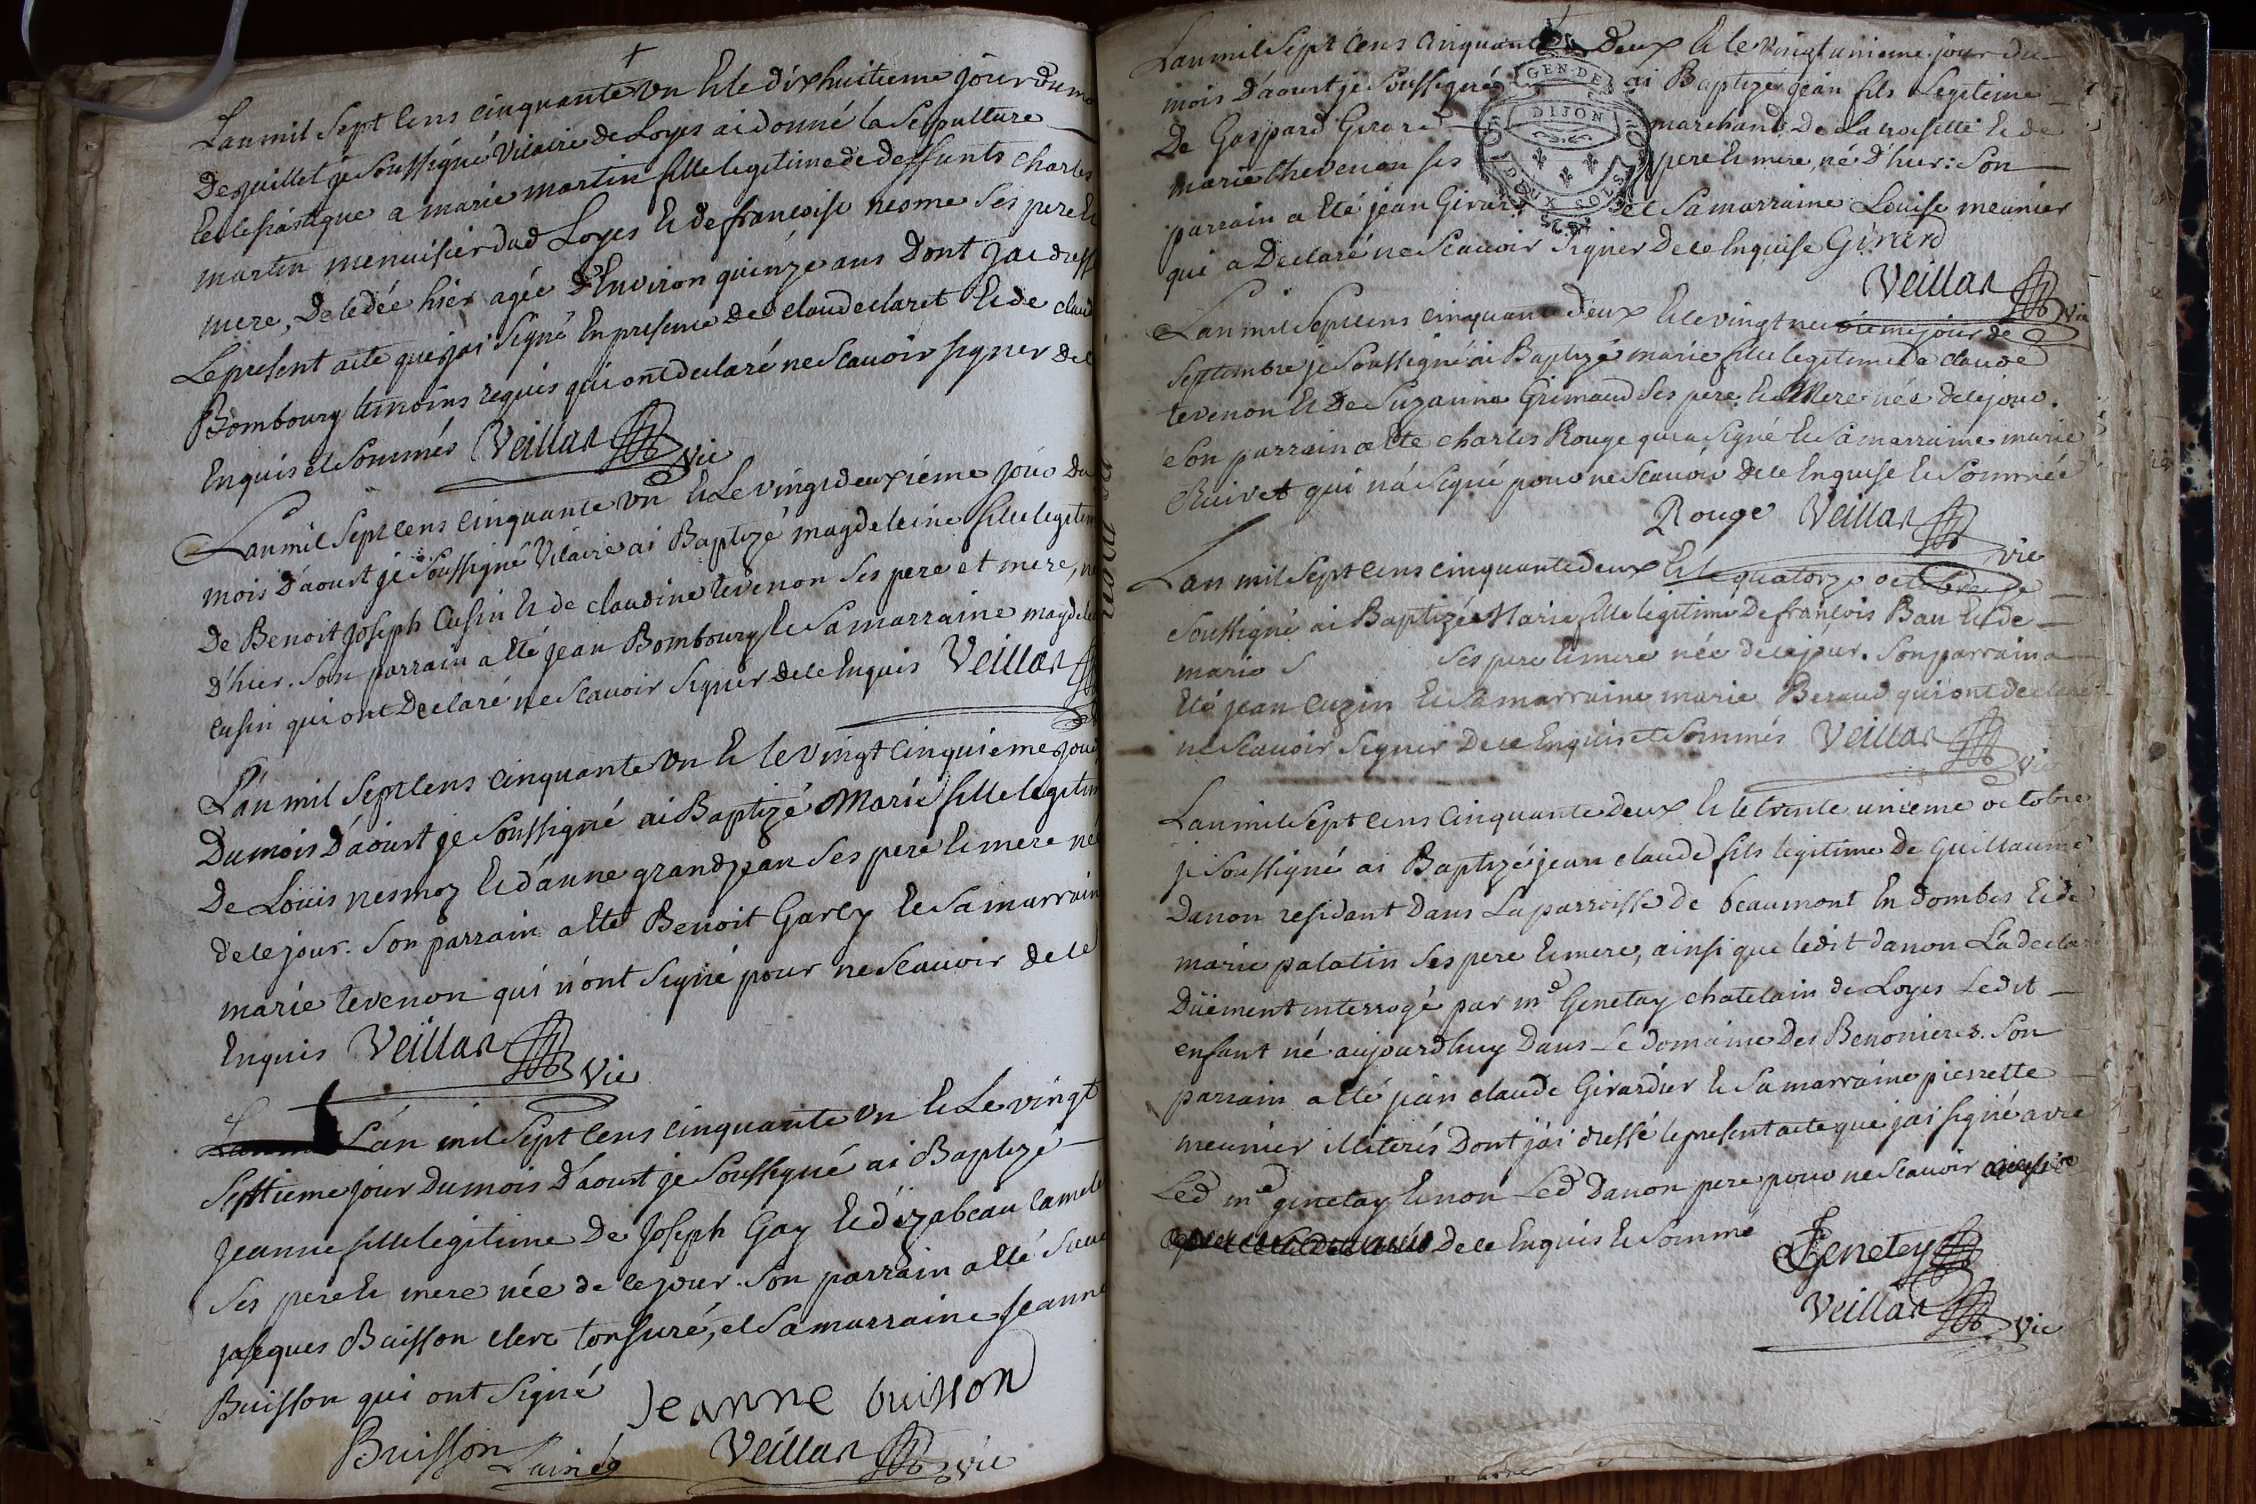 L'an mil sept cens cinquante un & le dixhuitieme jour du mo
De juillet je soussigné Vicaire de Loyes ai donné la sepulture
Ecclesiastique a marie martin fille legitime de deffunts charles
martin menuisier dud Loyes & de francoise neome ses pere &
mere, Decedée hier agée d'Environ quinze ans Dont j'ai dressé
Le present acte que j'ai signé En presence de claude claret & de claud
Bombourg temoins requis qui ont declaré ne scavoir signer de ce
Enquis et sommés Veillar vic
L'an mil sept cens cinquante un & Le vingt deuxiéme jour Du
mois D'aoust je soussigné Vicaire ai Baptizé magdeleine fille legitim
De Benoit Joseph Cusin & de claudine tevenon ses pere et mere, né
d'hier. Son parrain a Eté jean Bombourg & sa marraine magdele
cusin qui ont Declaré ne scavoir signer de ce Enquis Veillar
L'an mil sept cens cinquante un & le vingt cinquieme jour
Du mois D'aoust je soussigné ai Baptizé Marie fille legitim
De Louis nesmoz & d'anne grandjean ses pere & mere né
de ce jour. Son parrain a Eté Benoit Garcy & sa marrain
marie tevenon qui n'ont signé pour ne scavoir de ce
Enquis Veillar Vic
L'an mil sept cens cinquante un & Le vingt
septieme jour Du mois D'aoust je soussigné ai Baptizé
Jeanne fille legitime De Joseph Gay & d'izabeau camel
ses pere & mere née de ce jour. Son parrain a Eté
jacques Buisson clerc tonsuré, et sa marraine Jeanne
Buisson qui ont signé Jeanne buisson
Buisson Lainé Veillar vic
L'an mil sept cens cinquante Deux & le vingt unieme jour du
mois D'aoust je soussigné ai Baptizé jean fils Legitime
De Gaspard Girard marchand De La croisette & de
marie thevenon ses pere & mere, né D'hier: Son
parrain a Eté jean Girard et sa marraine Louise meunier
qui a Declaré ne scavoir signer De ce Enquise Girard
Veillar Vic
GEN. DE DIJON
DEUX SOLS
L'an mil sept cens cinquante deux & le vingt neuvieme jour de
septembre je soussigné ai Baptizé marie fille legitime De claude
tevenon & De suzanne Grimaud ses pere & Mere née de ce jour.
son parrain a Ete charles Rouge qui a signé & sa marraine marie
Chivet qui n'a signé pour ne scavoir de ce Enquise & Sommée
Rouge Veillar vic
L'an mil sept cens cinquante deux & le quatorze octobre je
soussigné ai Baptizé Marie fille legitime De françois Bau & de
marie S ses pere & mere née de ce jour. Son parrain a
Eté jean cuzin & sa marraine marie Beraud qui ont declaré
ne scavoir signer De ce Enquis et sommés Veillar vic
L'an mil sept cens cinquante deux & le trente unieme octobre
je soussigné ai Baptizé jean claude fils legitime De Guillaume
Danon residant Dans La parroisse de beaumont En dombes & de
marie palatin ses pere & mere, ainsi que ledit danon La declaré
Düement interrogé par me Genetay chatelain de Loyes Ledit
enfant né aujourdhuy Dans Le Domaine Des Benonieres. Son
parrain a Eté jean claude Girardier & sa marraine pierrette
meunier illiterés Dont j'ai dressé le present acte que j'ai signé avec
Led me genetay & non Led Danon pere pour ne scavoir
De ce Enquis & Sommé Genetey
Veillar Vic